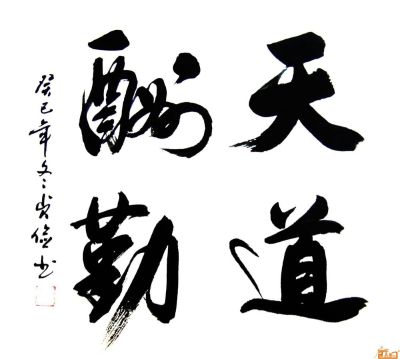 天道
酬勤
癸巳年冬